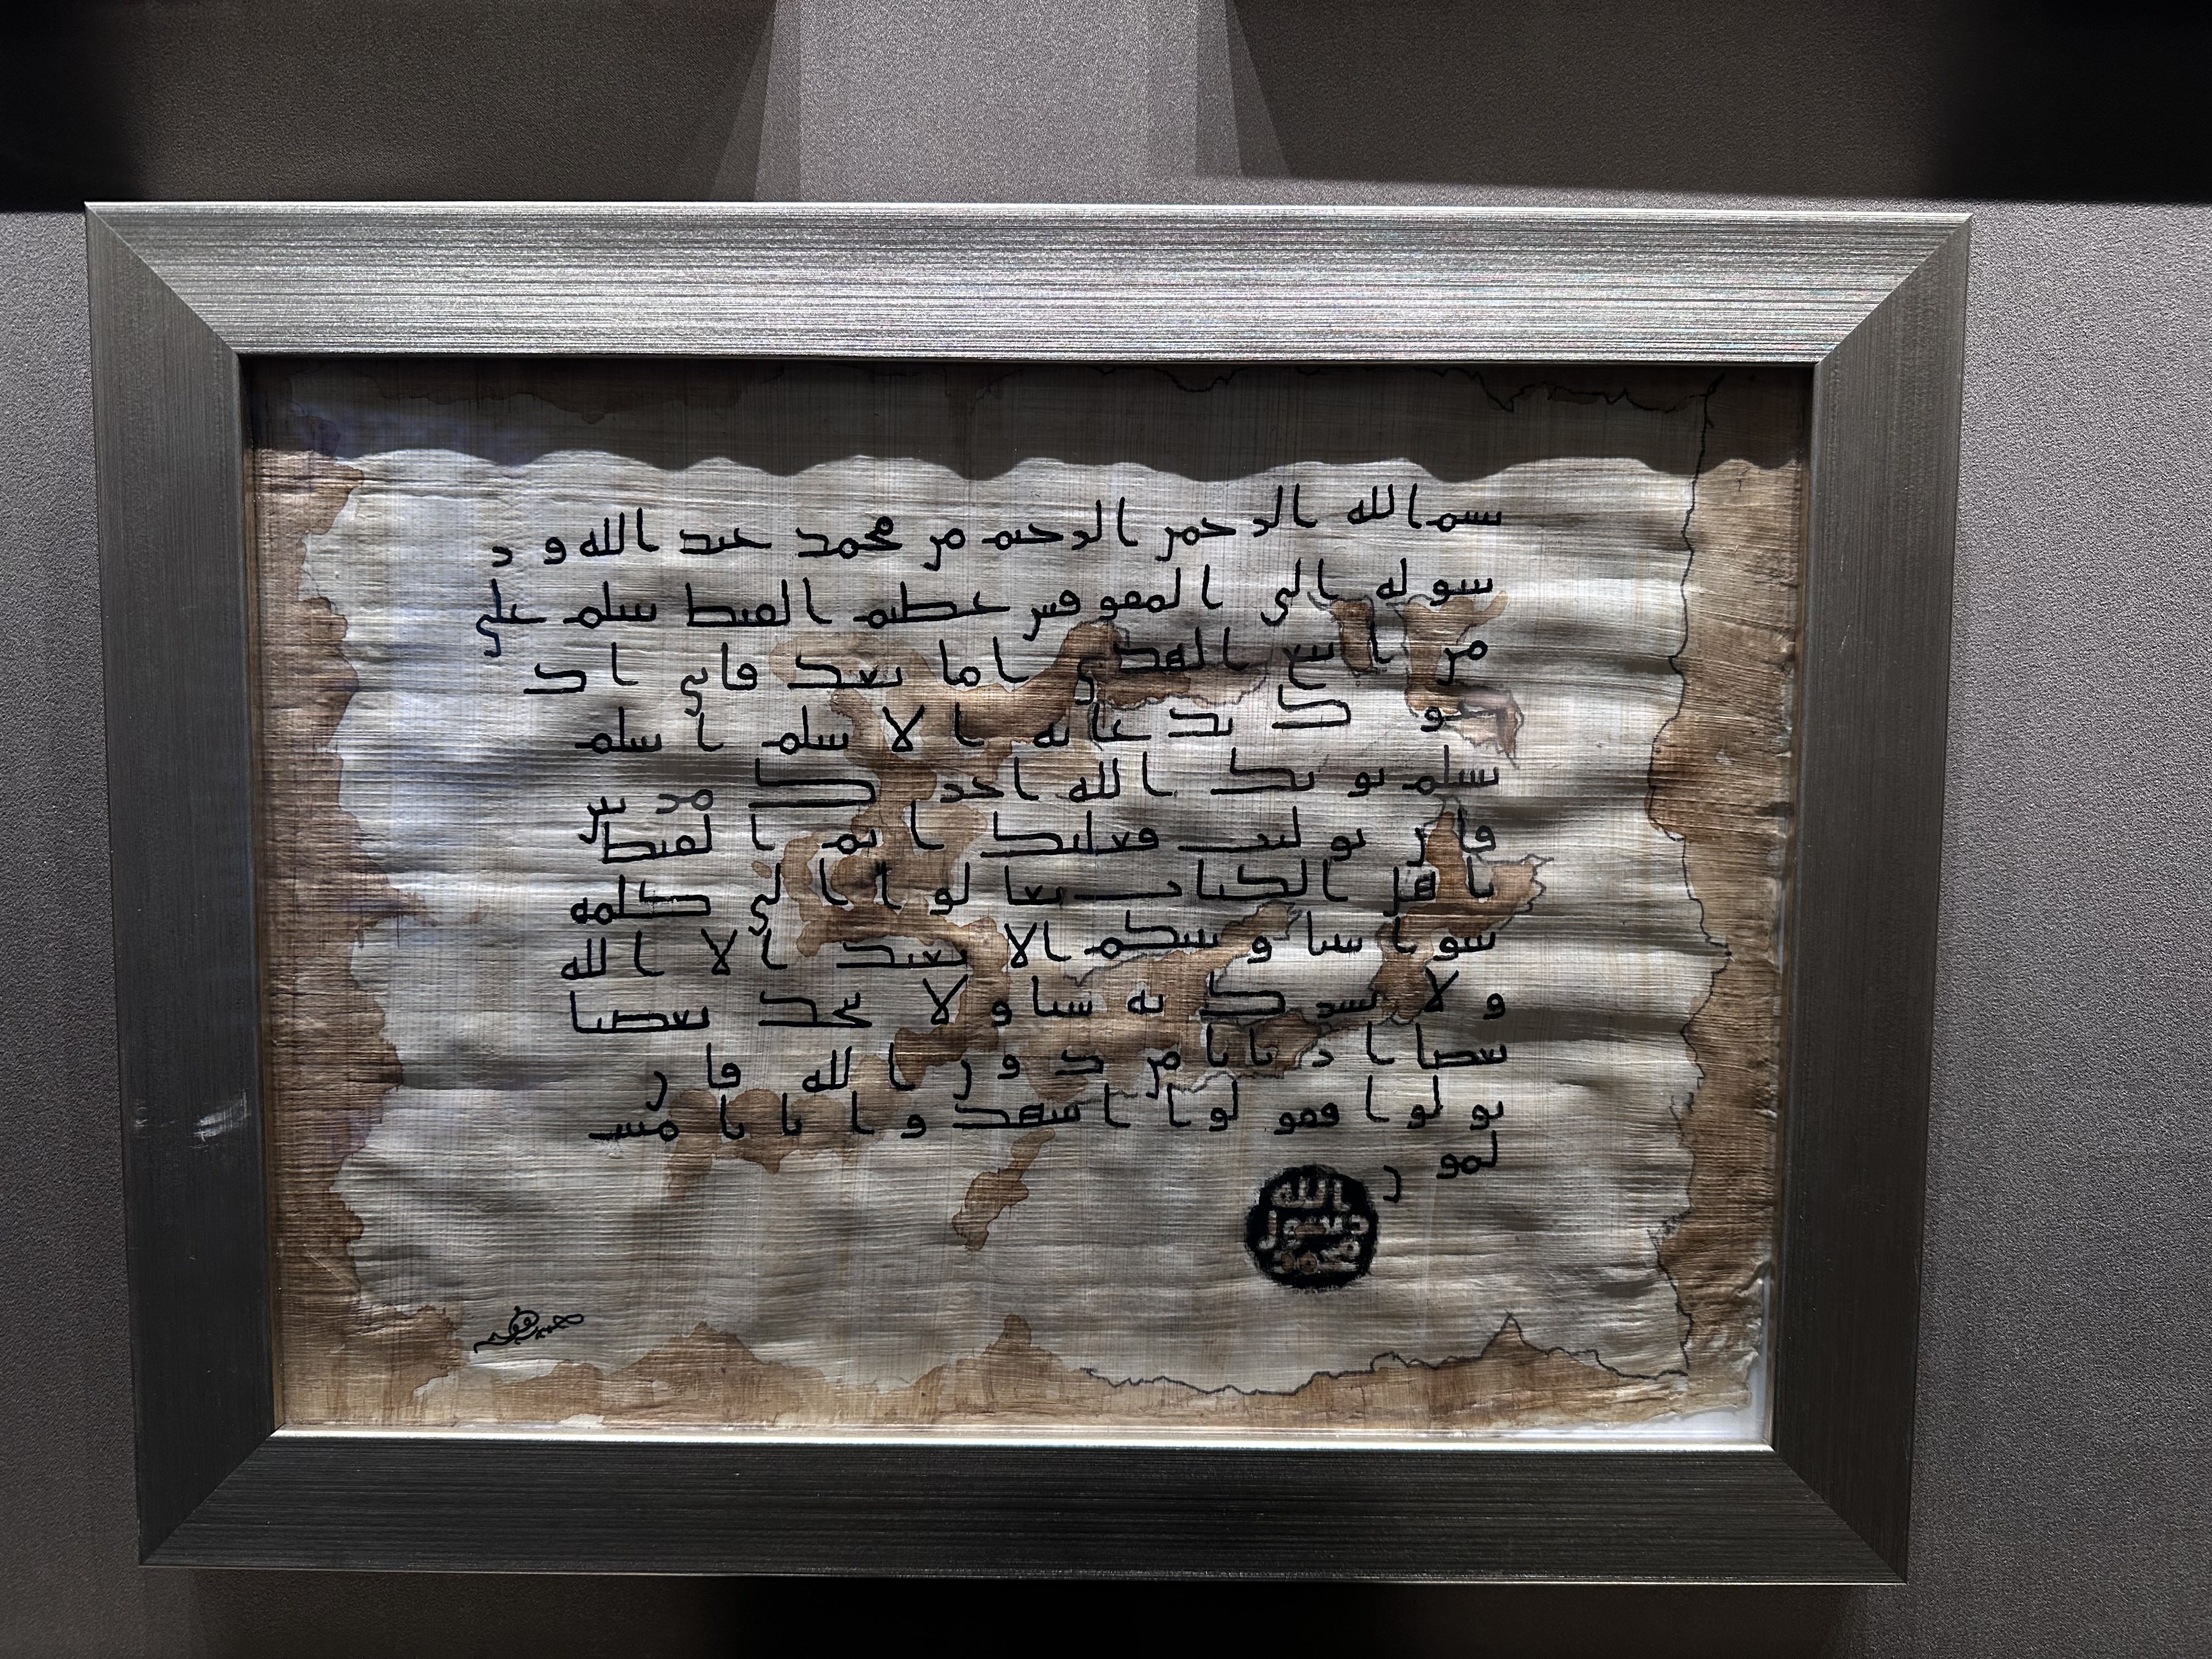 بسم الله الرحمن الرحيم من محمد عبد الله و ر
سوله الى المقوقس عظيم القبط سلم على
من اتبع الهدى اما بعد فاني اد
عو ك بدعايه الا سلم ا سلم
تسلم يو تك الله اجر ك مر تين
فا ن تو ليت فعليك ا ثم ا لقبط
يا هل الكتاب تعا لو ا ا لى كلمه
سو ا بيننا و بينكم الا نعبد ا لا الله
و لا نشر ك به شيا و لا يتخذ بعضنا
بعضا ا ر بابا من د و ن ا لله فا ن
تو لو ا فقو لو ا ا شهد و ا با نا مسـ
لمو ن
الله
رسول
محمد